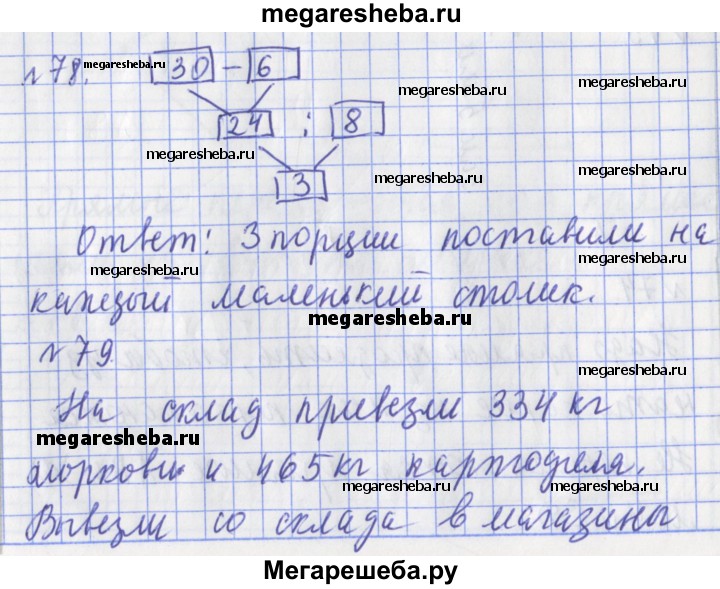 megaresheba.ru
№78. 30 - 6
megaresheba.ru
megaresheba.ru
24 : 8
megaresheba.ru
megaresheba.ru
3
Ответ: 3 порции поставили на
megaresheba.ru
каждый маленький столик.
megaresheba.ru
№79
На склад привезли 334 кг
megaresheba.ru
моркови и 465 кг картофеля.
megaresheba.ru
megaresheba.ru
Вывезли со склада в магазины
megaresheba.ru
Мегарешеба.ру